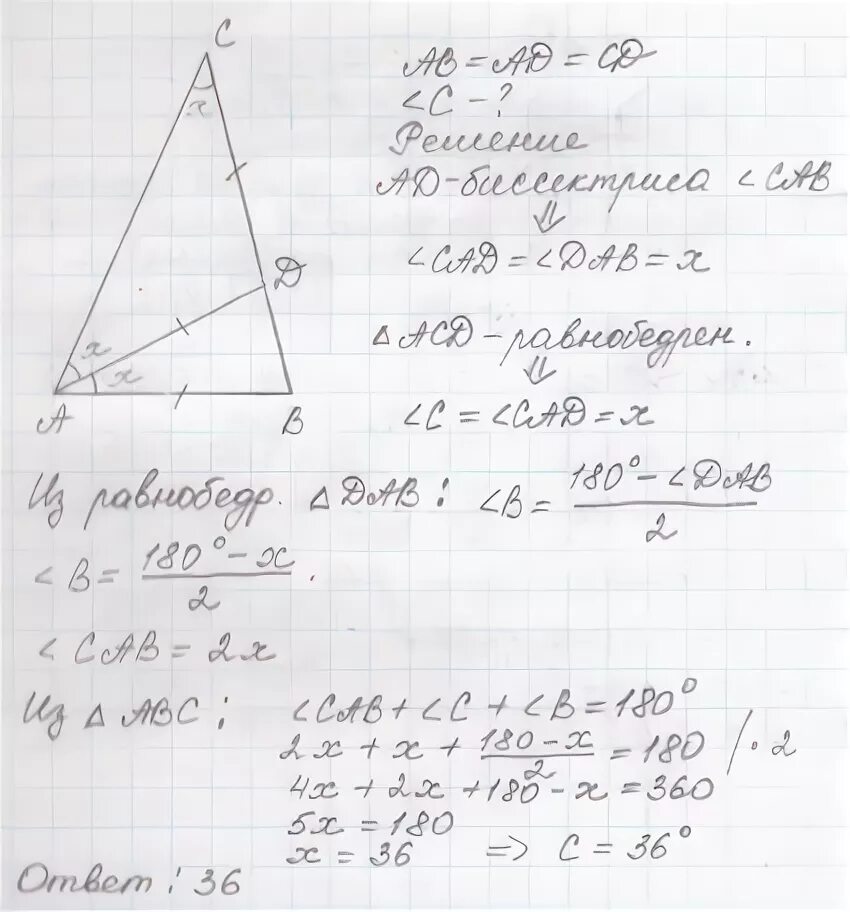 C
x
D
x
x
A
B
AB = AD = CD
∠C - ?
Решение
AD - биссектриса ∠CAB
⇓
∠CAD = ∠DAB = x
△ACD - равнобедрен.
⇓
∠C = ∠CAD = x
Из равнобедр. △DAB: ∠B = (180° - ∠DAB)/2
∠B = (180° - x)/2.
∠CAB = 2x
Из △ABC: ∠CAB + ∠C + ∠B = 180°
2x + x + (180 - x)/2 = 180 / · 2
4x + 2x + 180 - x = 360
5x = 180
x = 36 ⇒ C = 36°
Ответ: 36